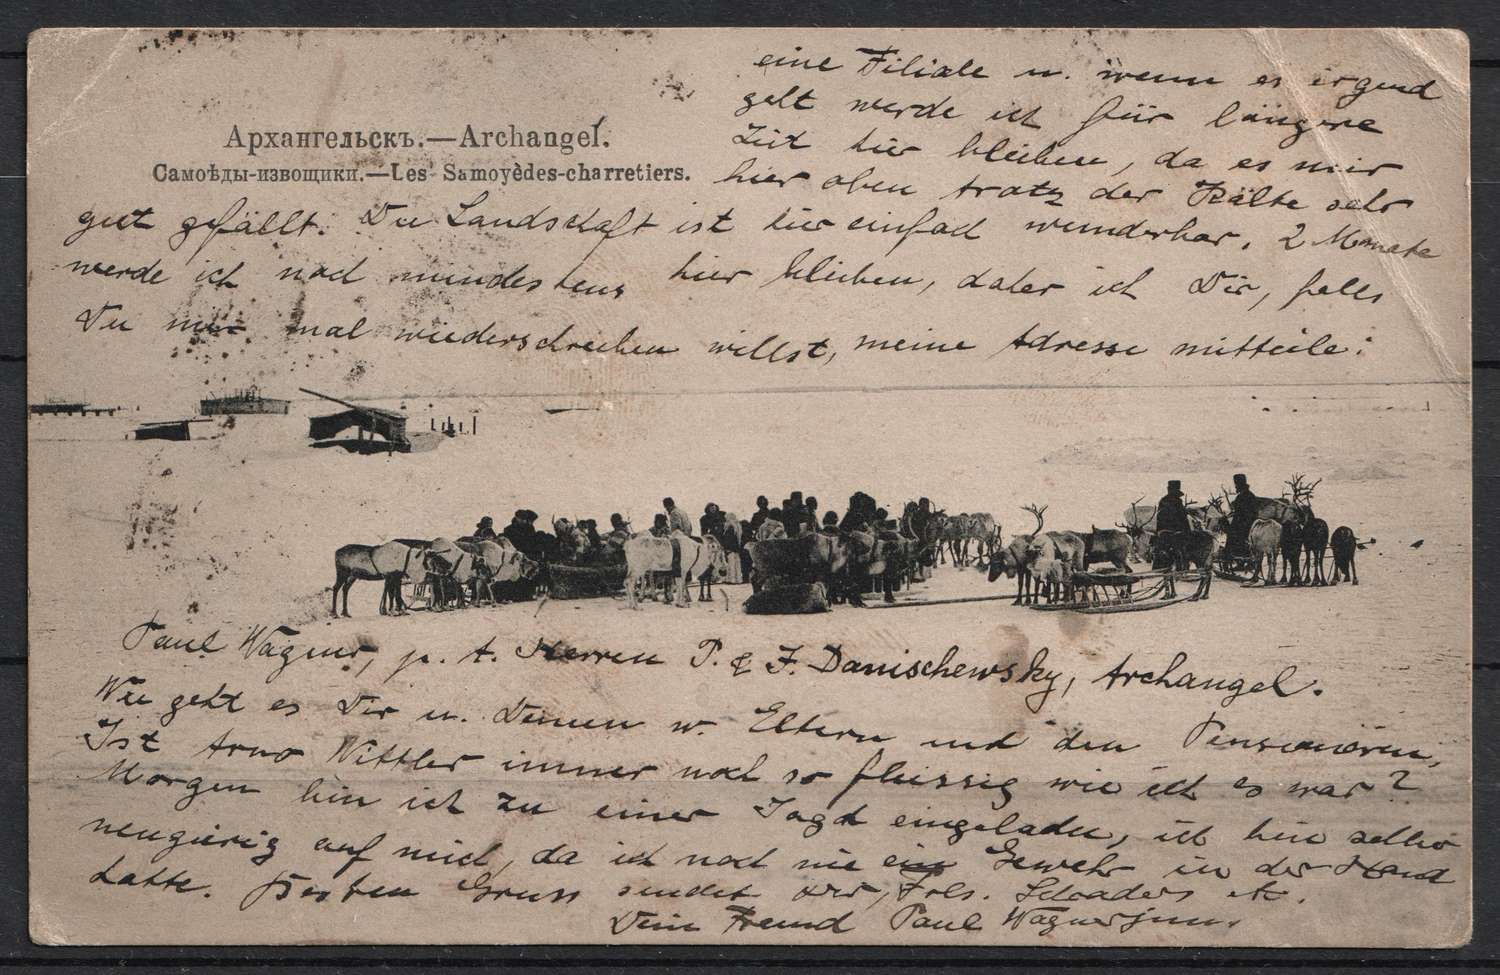 Архангельскъ.—Archangel.
Самоѣды-извощики.—Les Samoyèdes-charretiers.
eine Filiale u. wenn es irgend
geht werde ich für längere
Zeit hier bleiben, da es mir
hier oben trotz der Kälte sehr
gut gefällt. Die Landschaft ist hier einfach wunderbar. 2 Monate
werde ich noch mindestens hier bleiben, daher ich Dir, falls
Du mir mal wiederschreiben willst, meine Adresse mitteile:
Paul Wagner, p. A. Herren P. & F. Danischewsky, Archangel.
Wie geht es Dir u. Deinen w. Eltern und den Pensionären,
Ist Arno Wittler immer noch so fleissig wie ich es war?
Morgen bin ich zu einer Jagd eingeladen, ich bin selber
neugierig auf mich, da ich noch nie ein Gewehr in der Hand
hatte. Besten Gruss sendet Dir, Frls. Schraders etc.
Dein Freund Paul Wagner jun.